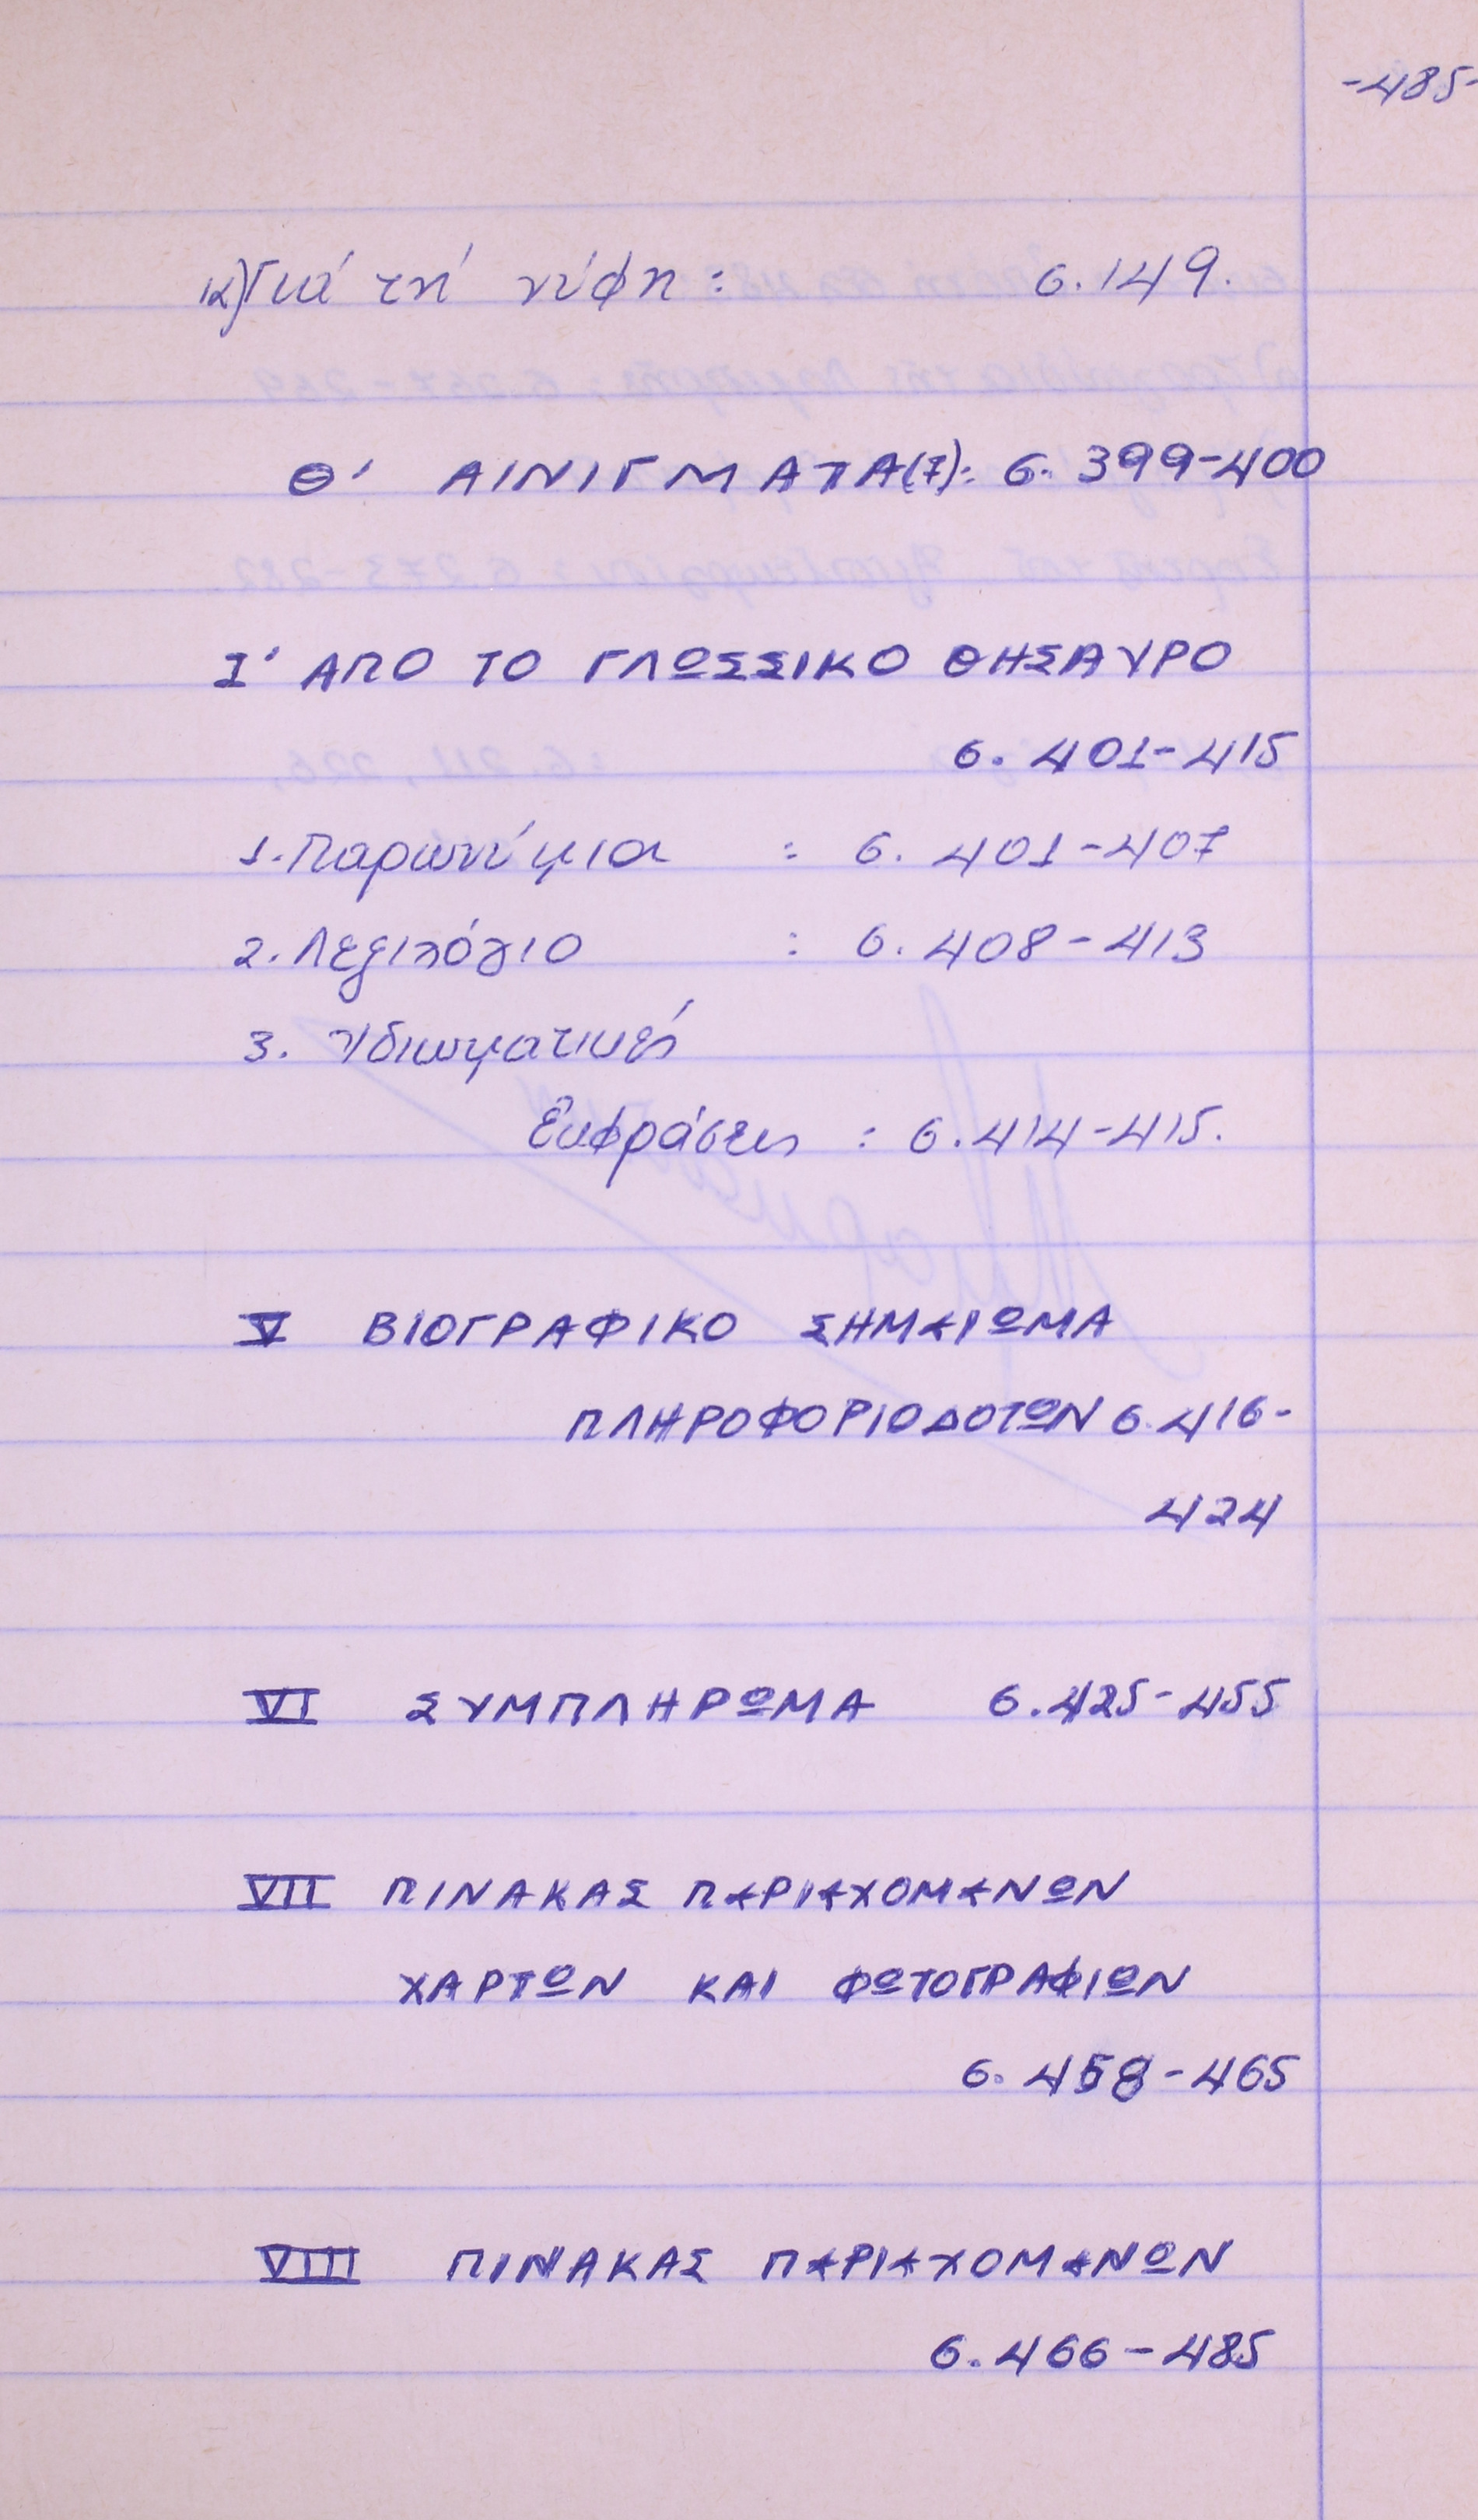 -485-
ια) Γιά τή νύφη : σ. 149.
Θ' ΑΙΝΙΓΜΑΤΑ (7): σ. 399-400
Ι' ΑΠΟ ΤΟ ΓΛΩΣΣΙΚΟ ΘΗΣΑΥΡΟ
σ. 401-415
1. Παρωνύμια : σ. 401-407
2. Λεξιλόγιο : σ. 408-413
3. Ἰδιωματικές
Ἐκφράσεις : σ. 414-415.
V ΒΙΟΓΡΑΦΙΚΟ ΣΗΜΕΙΩΜΑ
ΠΛΗΡΟΦΟΡΙΟΔΟΤΩΝ σ. 416-
424
VI ΣΥΜΠΛΗΡΩΜΑ σ. 425-455
VII ΠΙΝΑΚΑΣ ΠΕΡΙΕΧΟΜΕΝΩΝ
ΧΑΡΤΩΝ ΚΑΙ ΦΩΤΟΓΡΑΦΙΩΝ
σ. 458-465
VIII ΠΙΝΑΚΑΣ ΠΕΡΙΕΧΟΜΕΝΩΝ
σ. 466-485